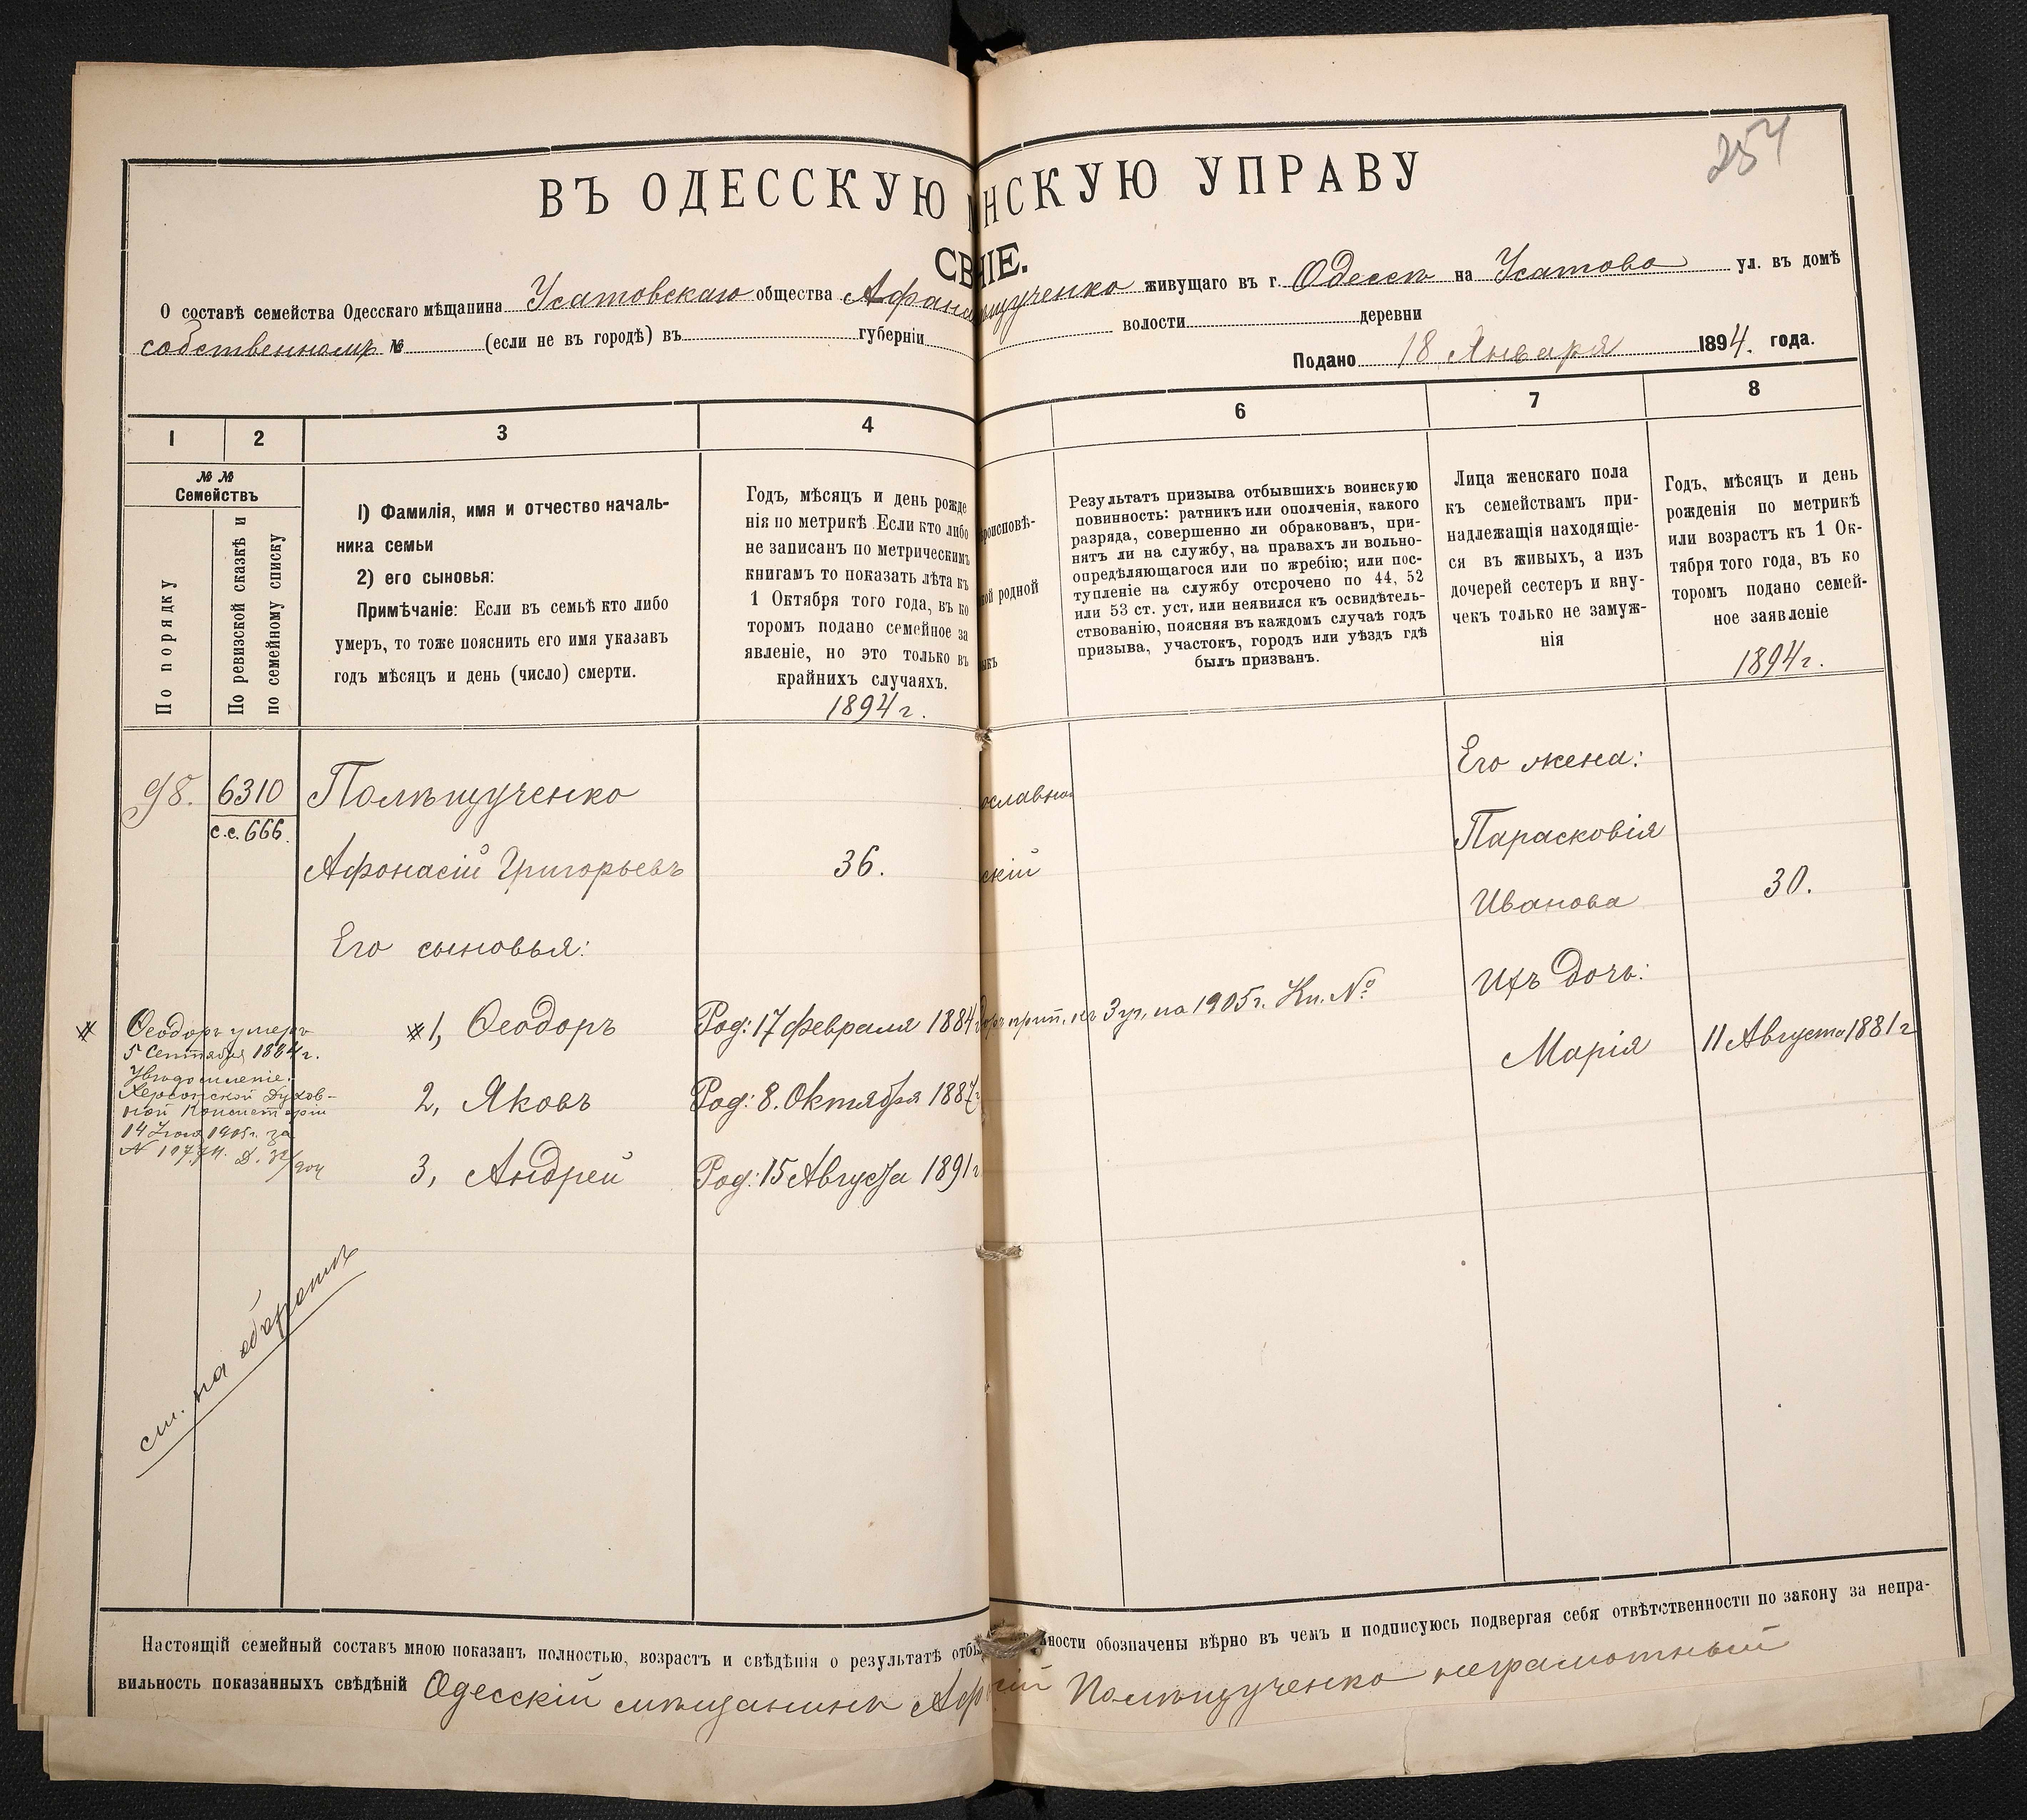 254
ВЪ ОДЕССКУЮ НСКУЮ УПРАВУ
СВ НІЕ.
О составѣ семейства Одесскаго мѣщанина Усатовскаго общества Афана щученко живущаго въ г. Одессѣ на Усатово ул. въ домѣ
собственномъ № (если не въ городѣ) въ губерніи волости деревни
Подано 18 Января 1894. года.
1 2 3 4 6 7 8
№ № Семействъ
По порядку
По ревизской сказкѣ и
по семейному списку
1) Фамилія, имя и отчество началь-
ника семьи
2) его сыновья:
Примѣчаніе: Если въ семьѣ кто либо
умеръ, то тоже пояснить его имя указавъ
годъ мѣсяцъ и день (число) смерти.
Годъ, мѣсяцъ и день рожде
нія по метрикѣ. Если кто либо
не записанъ по метрическимъ
книгамъ то показать лѣта къ
1 Октября того года, въ ко
торомъ подано семейное за
явленіе, но это только въ
крайнихъ случаяхъ.
1894 г.
роисповѣ-
ой родной
ыкъ
Результатъ призыва отбывшихъ воинскую
повинность: ратникъ или ополченія, какого
разряда, совершенно ли обракованъ, при-
нятъ ли на службу, на правахъ ли вольно-
опредѣляющагося или по жребію; или пос-
тупленіе на службу отсрочено по 44, 52
или 53 ст. уст. или неявился къ освидѣтель-
ствованію, поясняя въ каждомъ случаѣ годъ
призыва, участокъ, городъ или уѣздъ гдѣ
былъ призванъ.
Лица женскаго пола
къ семействамъ при-
надлежащія находящіе-
ся въ живыхъ, а изъ
дочерей сестеръ и вну-
чекъ только не замуж-
нія
Годъ, мѣсяцъ и день
рожденія по метрикѣ
или возрастъ къ 1 Ок-
тября того года, въ ко
торомъ подано семей-
ное заявленіе
1894 г.
98. 6310 Полѣщученко ославный Его жена:
с.с. 666. Парасковія
Афонасій Григорьевъ 36. скій Иванова 30.
Его сыновья: Ихъ дочь:
1, Ѳеодоръ Род: 17 февраля 1884 прип. къ 3 уч. на 1905 г. Кн. №
Марія 11 Августа 1881 г
2, Яковъ Род: 8. Октября 1887
3, Андрей Род: 15 Августа 1891 г
Ѳеодоръ умеръ
5 Сентября 1884 г.
Увѣдомленіе
Херсонской Духов-
ной Консисторіи
14 1905 г. за
см. на оборотѣ
Настоящій семейный составъ мною показанъ полностью, возрастъ и свѣдѣнія о результатѣ отбы ности обозначены вѣрно въ чемъ и подписуюсь подвергая себя отвѣтственности по закону за непра-
вильность показанныхъ свѣдѣній Одесскій мѣщанинъ Аф сій Полѣщученко неграмотный